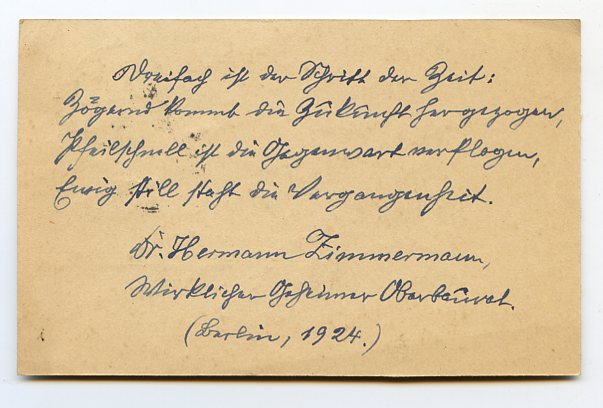 Dreifach ist der Schritt der Zeit:
Zögernd kommt die Zukunft hergezogen,
Pfeilschnell ist die Gegenwart verflogen,
Ewig still steht die Vergangenheit.
Dr. Hermann Zimmermann,
Wirklicher Geheimer Oberbaurat.
(Berlin, 1924.)